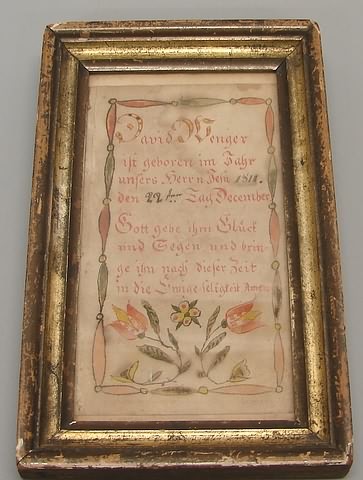 David Wenger
ist geboren im Jahr
unsers Herrn Jesu 1814.
den 22ten Tag December
Gott gebe ihm Glück
und Segen und brin-
ge ihn nach dieser Zeit
in die Ewige seligkeit Amen